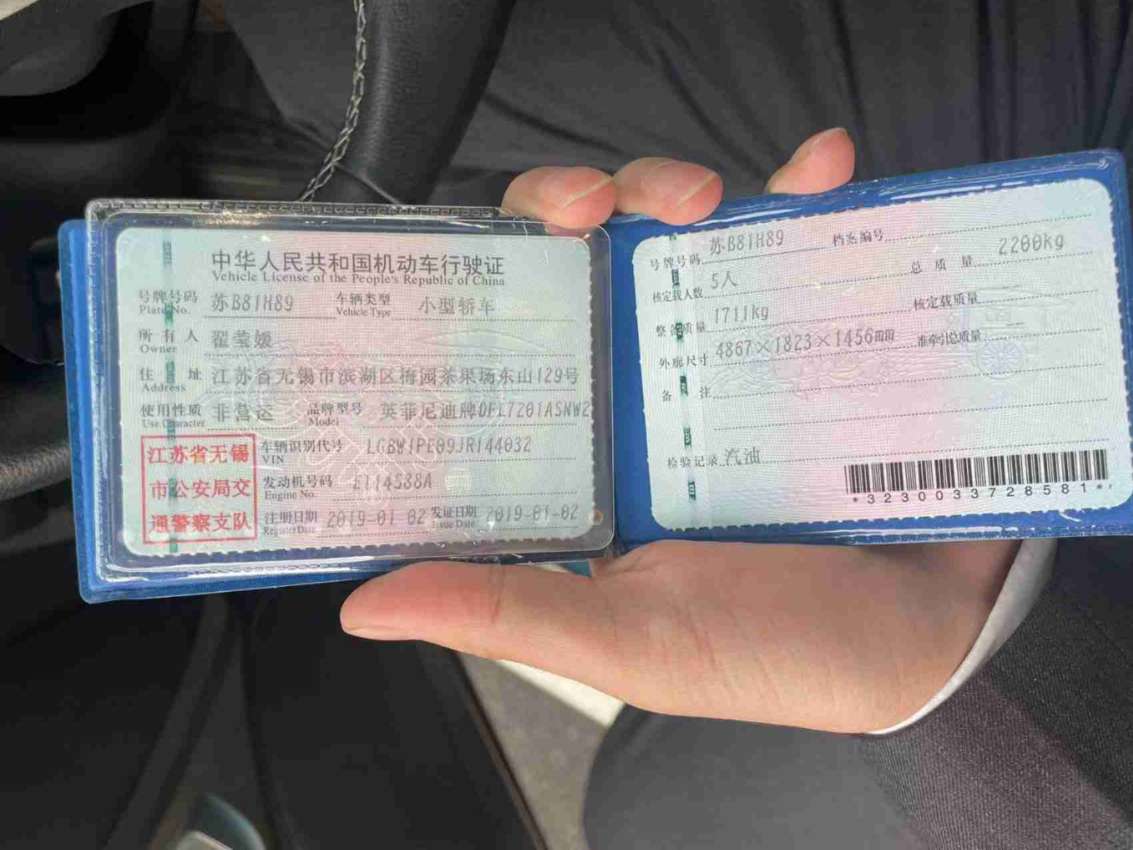 中华人民共和国机动车行驶证
Vehicle License of the People's Republic of China
号牌号码 苏B81H89 车辆类型 小型轿车
Plate No. Vehicle Type
所有人 翟莹媛
Owner
住址 江苏省无锡市滨湖区梅园茶果场东山129号
Address
使用性质 非营运 品牌型号 英菲尼迪牌DFL7201ASNW2
Use Character Model
江苏省无锡
市公安局交
通警察支队
车辆识别代号 LGBW1PE09JR144032
VIN
发动机号码 E114588A
Engine No.
注册日期 2019-01-02 发证日期 2019-01-02
Register Date Issue Date
号牌号码 苏B81H89 档案编号
核定载人数 5人 总质量 2200kg
整备质量 1711kg 核定载质量
外廓尺寸 4867×1823×1456mm 准牵引总质量
备注
检验记录 汽油
*3230033728581*